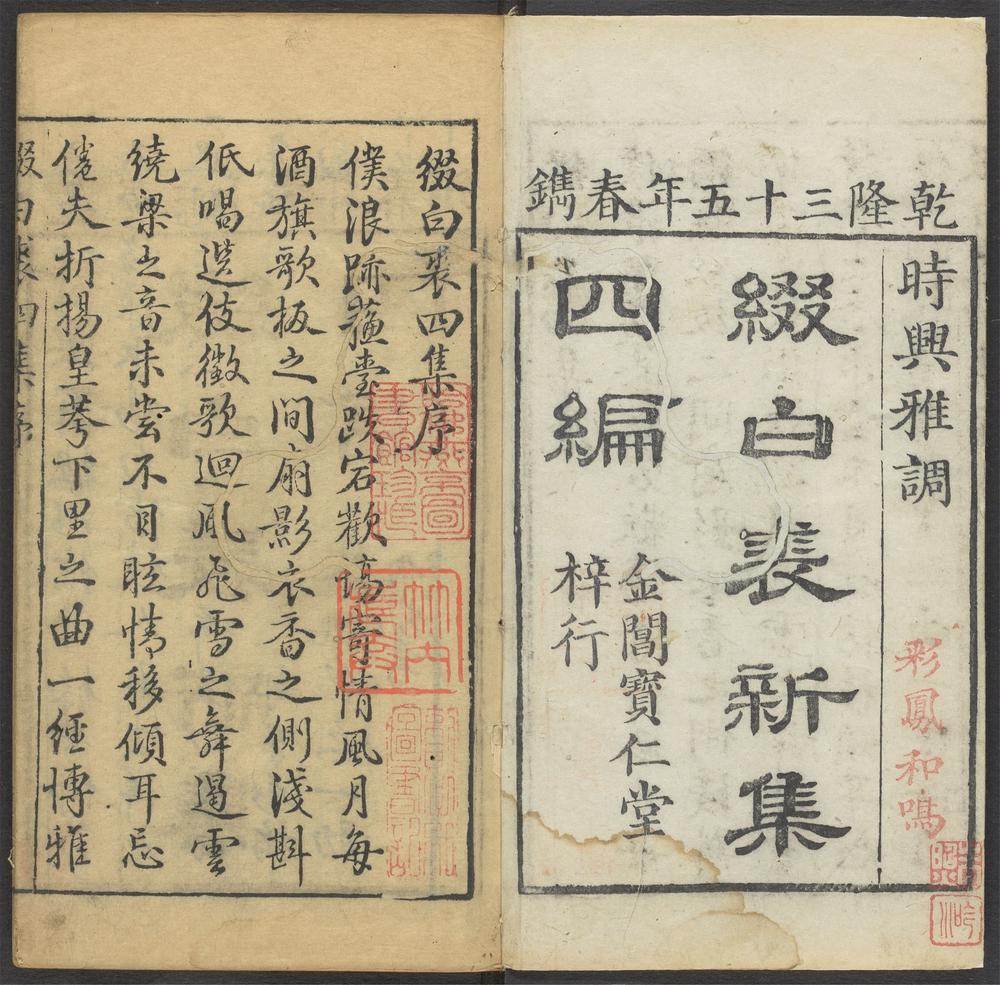 乾隆三十五年春鐫
時興雅調
彩鳳和鳴
綴白裘新集
四編
金閶寶仁堂
梓行
綴白裘四集序
僕浪跡蘓臺跌宕歡塲寄情風月每
酒旗歌板之間扇影衣香之側淺斟
低唱選伎徵歌迴風飛雪之舞遏雲
繞梁之音未嘗不目眩情移傾耳忘
倦夫折揚皇荂下里之曲一經博雅
綴白裘四集序